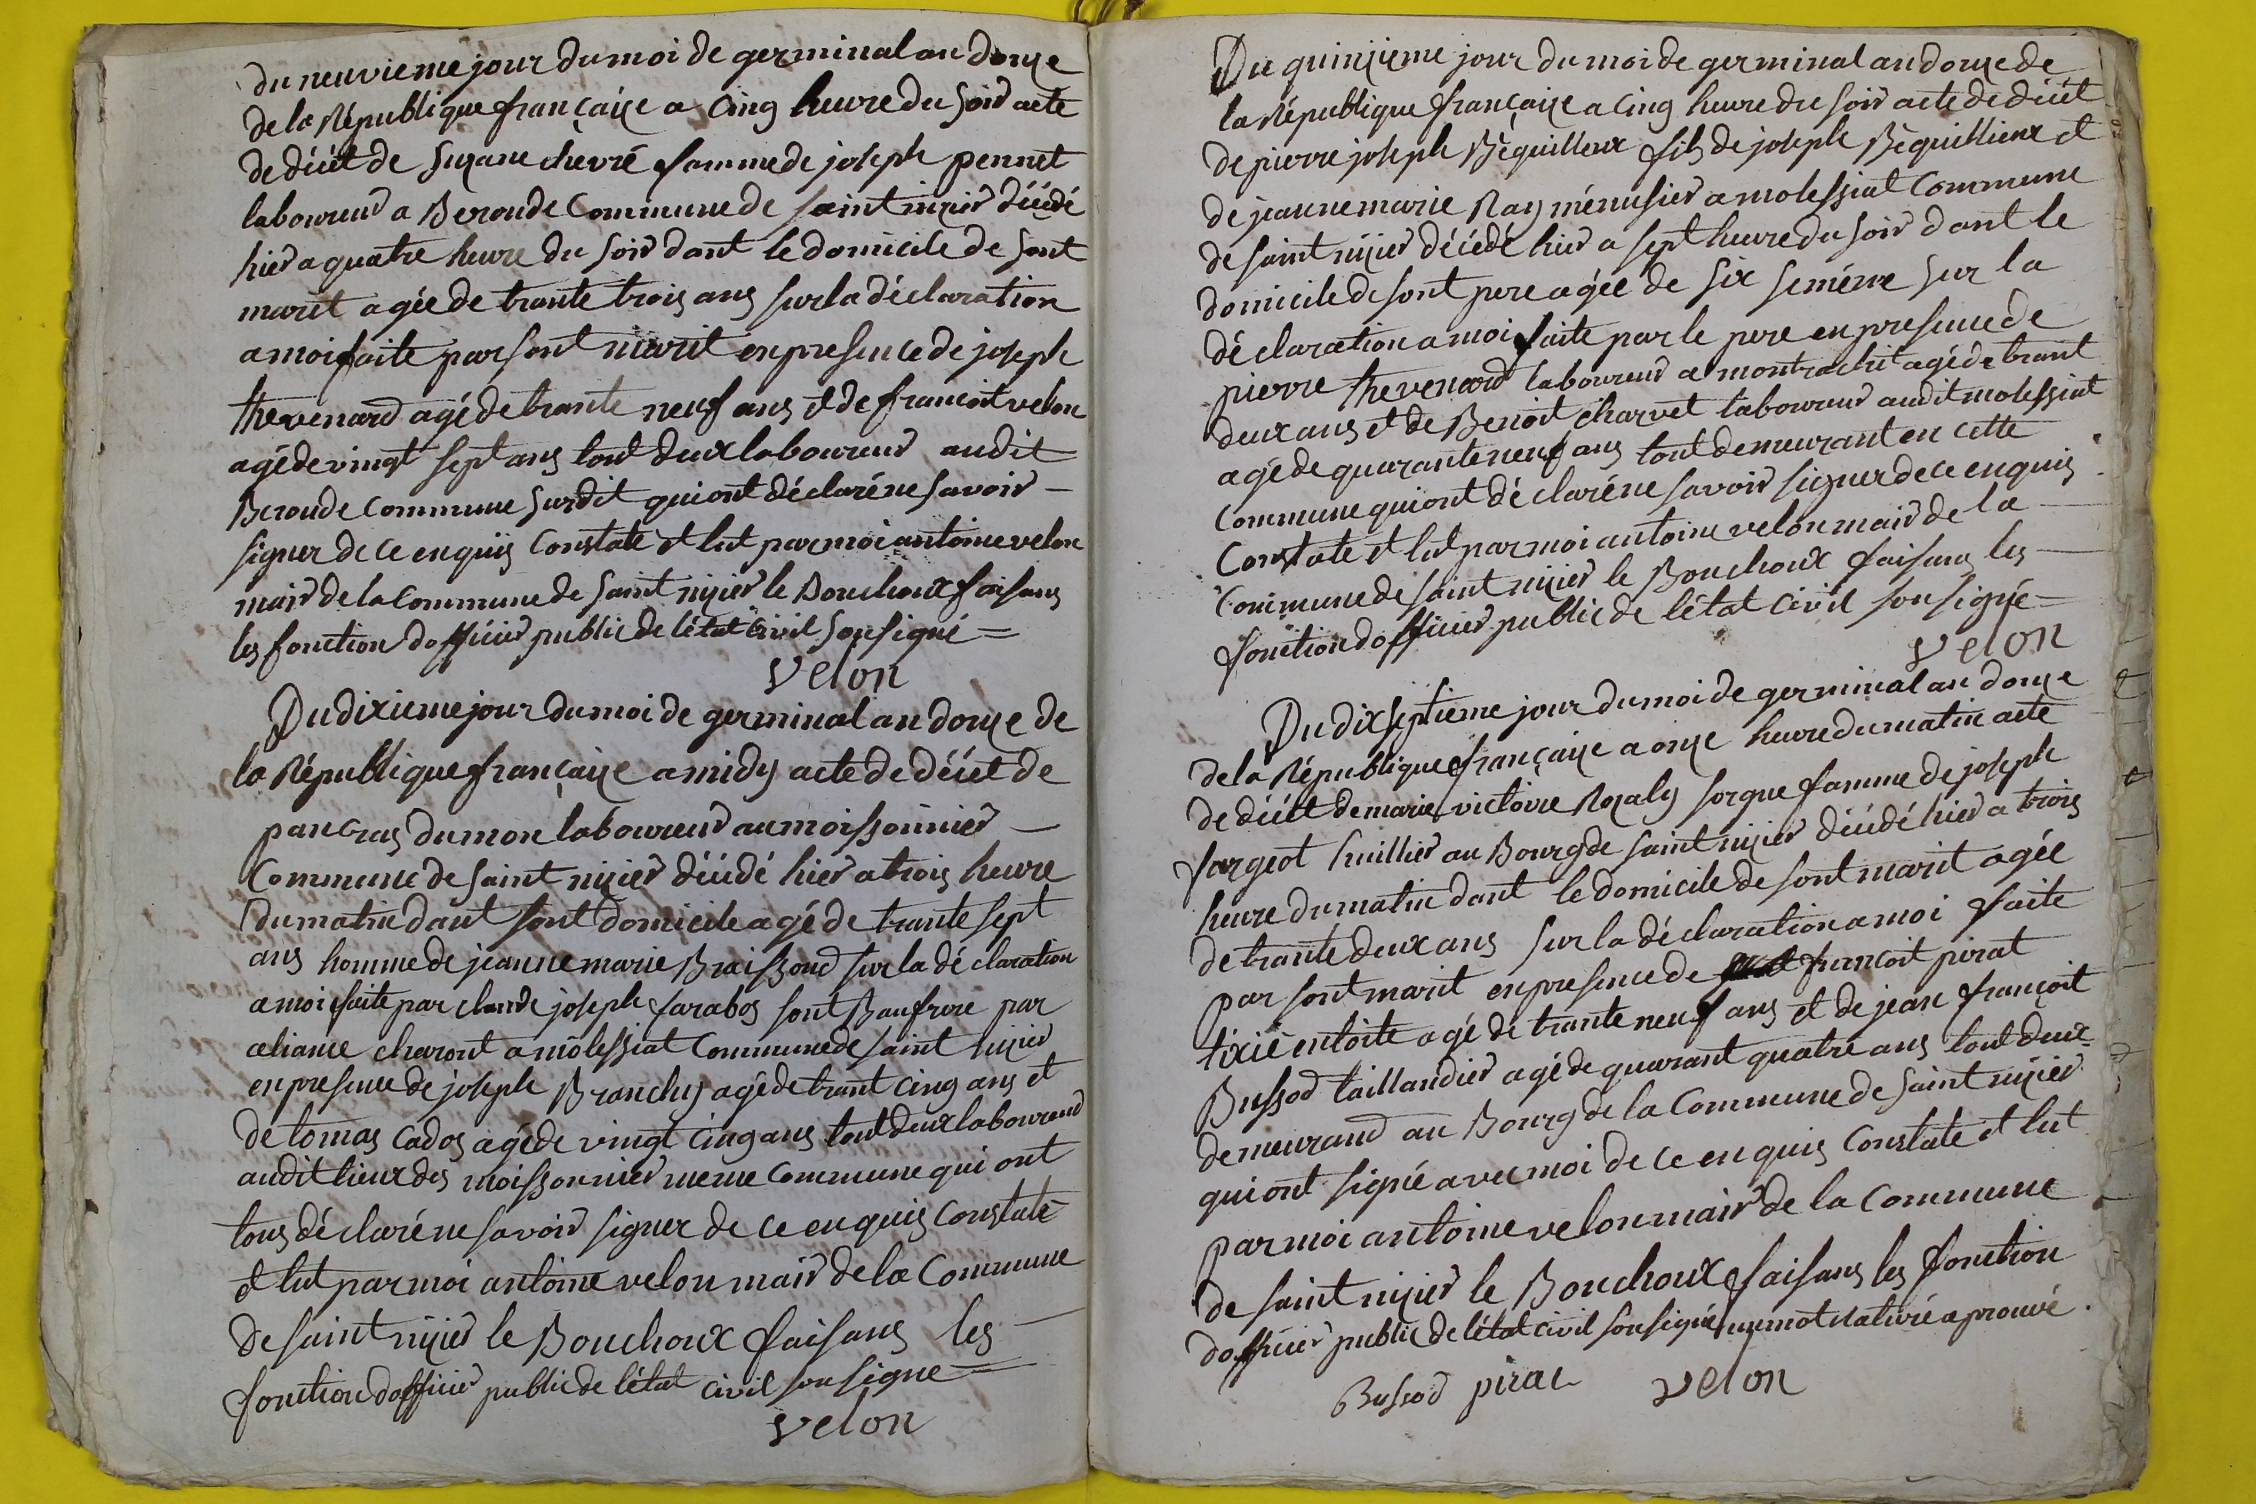 du neuvieme jour du moi de germinal an douze
de la République françaize a cinq heure du soir acte
de décét de Suzane chevré famme de joseph pennet
laboureur a Beroude Commune de saint nizier décédé
hier a quatre heure du soir dant le domicile de sont
marit agée de trante trois ans sur la déclaration
a moi faite par sont marit en presence de joseph
thevenard agé de trante neuf ans et de francoit velon
agé de vingt sept ans tout deux laboureur audit
Beroude Commune surdit qui ont déclaré ne savoir
signer de ce enquis Constate et lut par moi antoine velon
mair de la Commune de saint nizier le Bouchoux faisans
les fonction dofficier public de l'état civil sousigné
velon
Du dixieme jour du moi de germinal an douze de
la République françaize a midy acte de décét de
pancras dumon laboureur au moissonnier
Commune de saint nizier décédé hier a trois heure
du matin dant sont domicile agé de trante sept
ans homme de jeanne marie Braissoud sur la déclaration
a moi faite par claude joseph farabos sont Baufrere par
aliance charont a molessiat Commune de saint nizier
en presence de joseph Branchy agé de trant cinq ans et
de tomas Cados agé de vingt cinq ans tout deux laboureur
audit lieux des moissonnier meme Commune qui ont
tous déclaré ne savoir signer de ce enquis Constate
et lut par moi antoine velon mair de la Commune
de saint nizier le Bouchoux faisans les
fonction dofficier public de l'état civil sousigne
velon
Du quinzieme jour du moi de germinal an douze de
la République françaize a cinq heure du soir acte de décét
de pierre joseph Béquilleux fils de joseph Béquillieux et
de jeanne marie Ray ménusier a molessiat Commune
de saint nizier décédé hier a sept heure du soir dant le
domicile de sont pere agée de six seméne sur la
déclaration a moi faite par le pere en presence de
pierre thevenard laboureur a montrachit agé de trant
deux ans et de Benoit charvet laboureur audit molessiat
agé de quarante neuf ans tout demeurant en cette
Commune qui ont déclaré ne savoir signer de ce enquis
Constate et lut par moi antoine velon mair de la
Commune de saint nizier le Bouchoux faisans les
fonction dofficier public de l'état civil sousigné
velon
Du dix septieme jour du moi de germinal an douze
de la République françaize a onze heure du matin acte
de décét de marie victoire Rozaly sorgue famme de joseph
fargeot huillier au Bourg de saint nizier décédé hier a trois
heure du matin dant le domicile de sont marit agée
de trante deux ans sur la déclaration a moi faite
par sont marit en presence de francoit pirat
tixié en toite agé de trante neuf ans et de jean françoit
Bussod taillandier agé de quarant quatre ans tout deux
demeurand au Bourg de la Commune de saint nizier
qui ont signé avec moi de ce enquis Constate et lut
par moi antoine velon mair de la Commune
de saint nizier le Bouchoux faisans les fonction
dofficier public de l'état civil sousigné un mot raturé aprouvé.
Bussod pirat velon